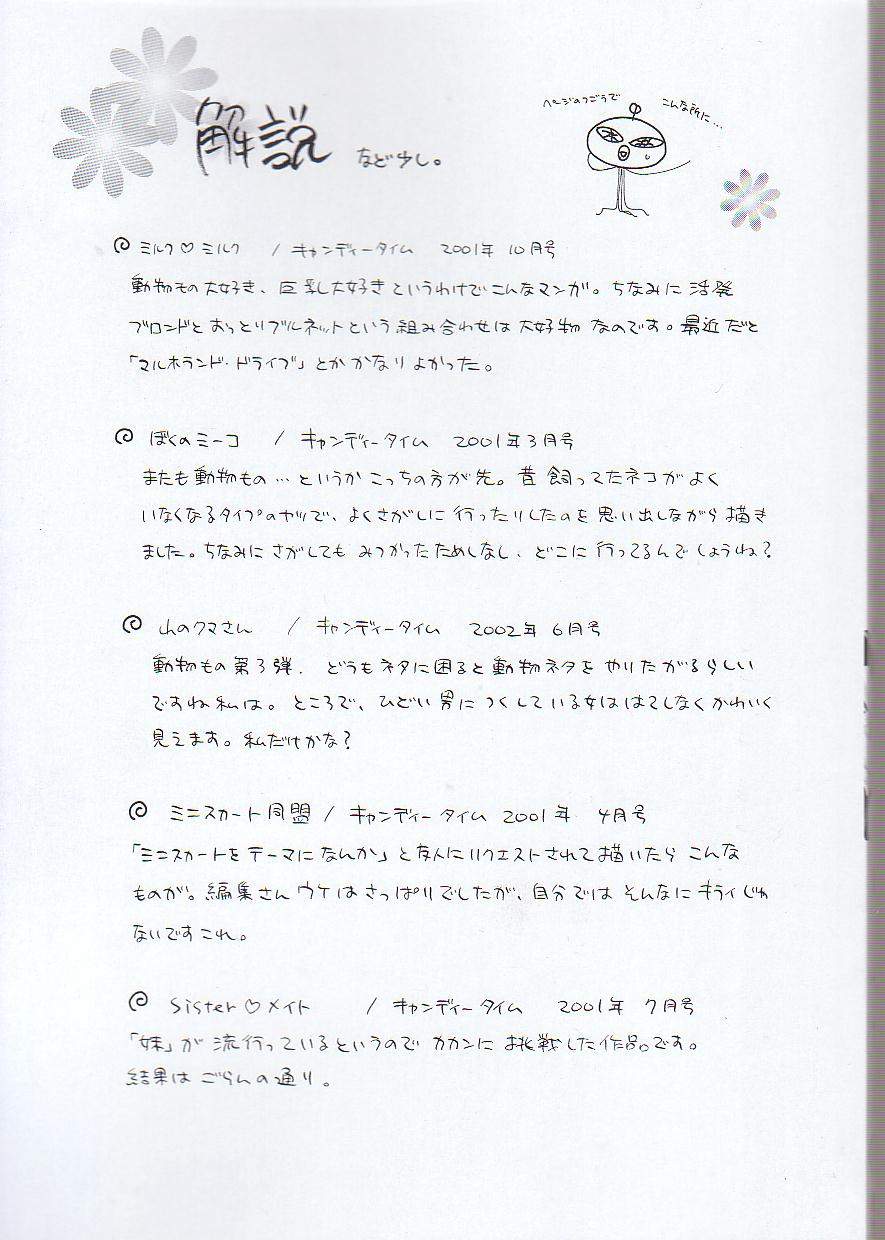 解説 など少し。
ページのつごうで
こんな所に…
ミルク♡ミルク / キャンディータイム 2001年 10月号
動物もの大好き、巨乳大好きというわけでこんなマンガ。ちなみに活発
ブロンドとおっとりブルネットという組み合わせは大好物なのです。最近だと
「マルホランド・ドライブ」とかかなりよかった。
ぼくのミーコ / キャンディータイム 2001年3月号
またも動物もの…というかこっちの方が先。昔飼ってたネコがよく
いなくなるタイプのヤツで、よくさがしに行ったりしたのを思い出しながら描き
ました。ちなみにさがしてもみつかったためしなし、どこに行ってるんでしょうね?
山のクマさん / キャンディータイム 2002年 6月号
動物もの第3弾. どうもネタに困ると動物ネタをやりたがるらしい
ですね私は。ところで、ひどい男につくしている女ははてしなくかわいく
見えます。私だけかな?
ミニスカート同盟 / キャンディータイム 2001年 4月号
「ミニスカートをテーマになんか」と友人にリクエストされて描いたらこんな
ものが。編集さんウケはさっぱりでしたが、自分ではそんなにキライじゃ
ないですこれ。
Sister♡メイト / キャンディータイム 2001年 7月号
「妹」が流行っているというのでカカンにお挑戦した作品。です。
結果はごらんの通り。